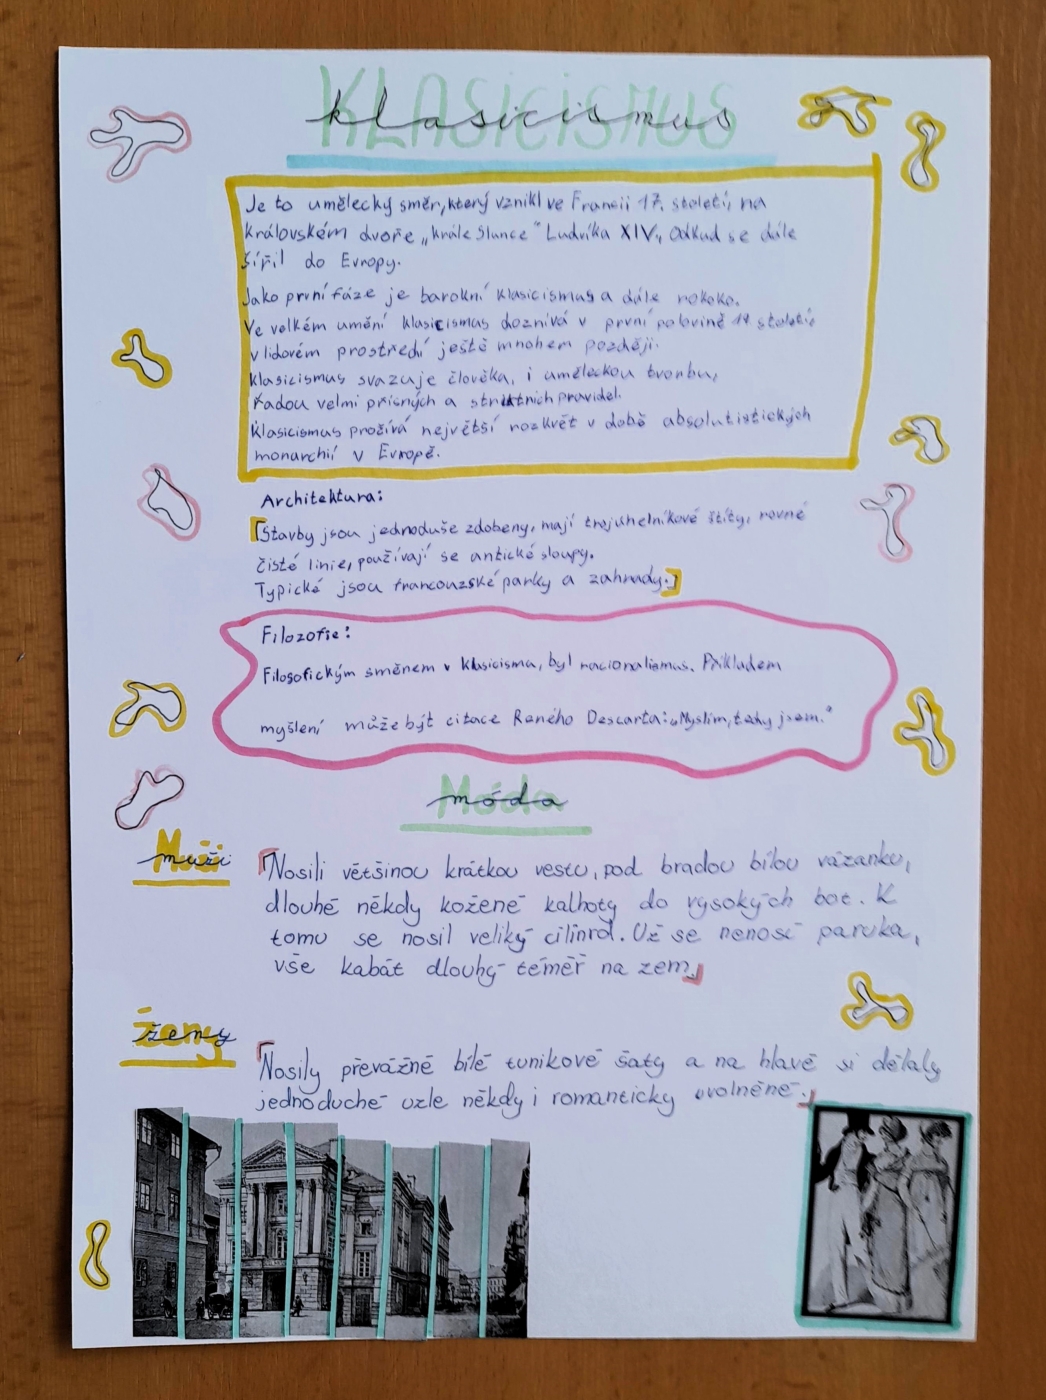 Klasicismus
klasicismus
Je to umělecký směr, který vznikl ve Francii 17. století, na
královském dvoře „krále Slunce" Ludvíka XIV., odkud se dále
šířil do Evropy.
Jako první fáze je barokní klasicismus a dále rokoko.
Ve velkém umění klasicismus doznívá v první polovině 19 století,
v lidovém prostředí ještě mnohem později.
Klasicismus svazuje člověka, i uměleckou tvorbu,
řadou velmi přísných a striktních pravidel.
Klasicismus prožívá největší rozkvět v době absolutistických
monarchií v Evropě.
Architektura:
Stavby jsou jednoduše zdobeny, mají trojuhelníkové štíty, rovné
čisté linie, používají se antické sloupy.
Typické jsou francouzské parky a zahrady.
Filozofie:
Filosofickým směnem v klasicisma, byl racionalismus. Příkladem
myšlení může být citace Reného Descarta: „Myslím, tedy jsem."
Móda
móda
Muži
muži
Nosili většinou krátkou vestu, pod bradou bílou vázanku,
dlouhé někdy kožené kalhoty do vysokých bot. K
tomu se nosil veliký cilinrd. Už se nenosí paruka,
vše kabát dlouhý téměř na zem.
Ženy
ženy
Nosily převážně bílé tunikové šaty a na hlavě si dělaly
jednoduché uzle někdy i romanticky uvolněné.